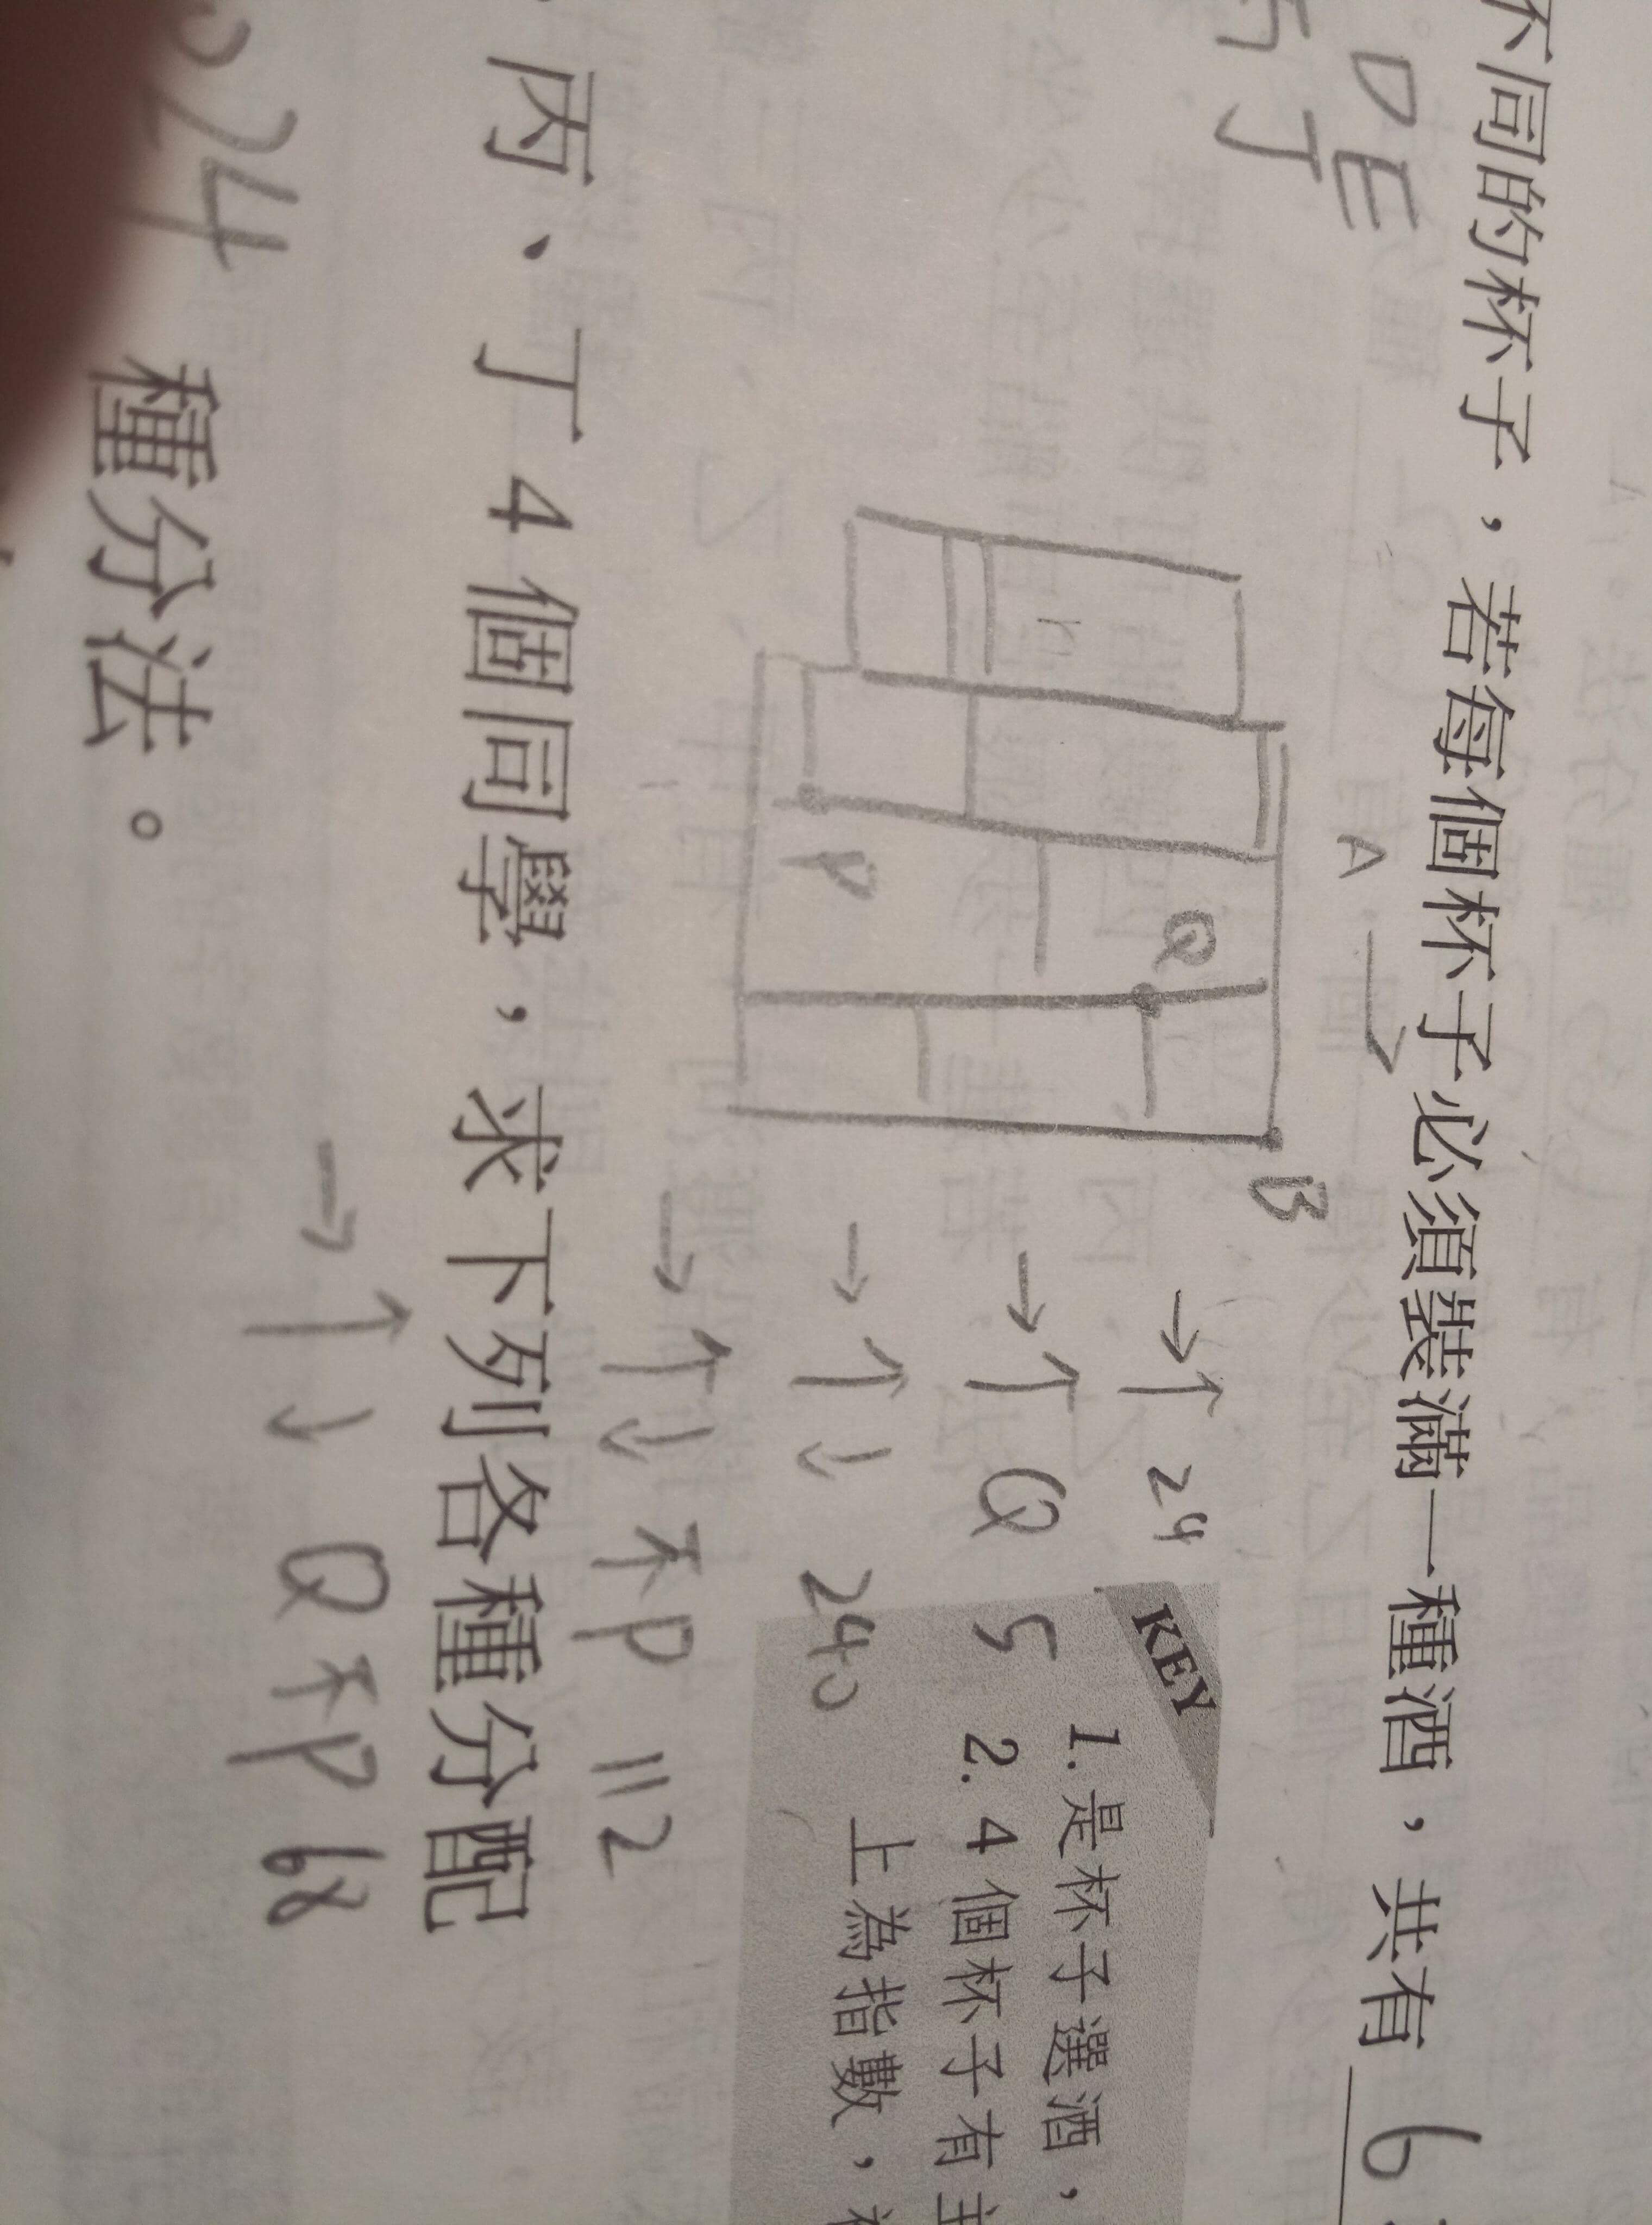 不同的杯子，若每個杯子必須裝滿一種酒，共有 6
DE
丁
A →
P
Q
B
→ ↑ 24
→ ↑ Q 5
→ ↑ ↓ 240
→ ↑ ↓ 不P 112
KEY
1. 是杯子選酒，
2. 4 個杯子有
上為指數，
丙、丁 4 個同學，求下列各種分配
→ ↑ ↓ Q 不P 68
24 種分法。